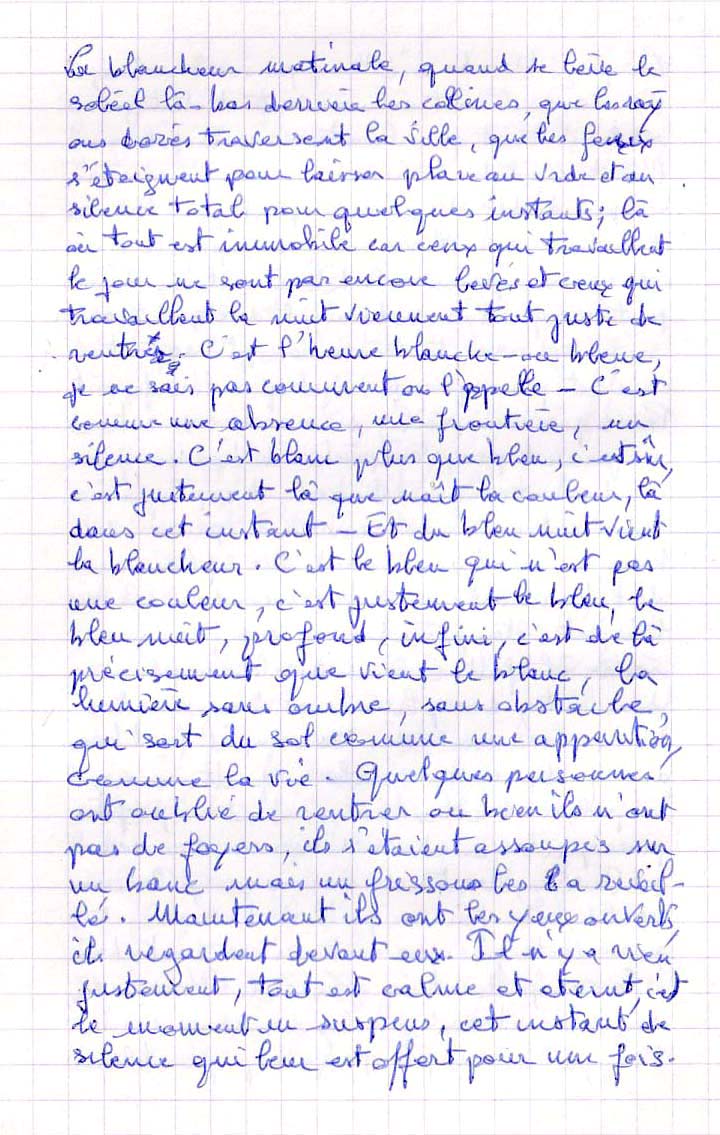 La blancheur matinale, quand se lève le
soleil là-bas derrière les collines, que les ray
ons dorés traversent la ville, que les feux
s'éteignent pour laisser place au vide et au
silence total pour quelques instants; là
où tout est immobile car ceux qui travaillent
le jour ne sont pas encore levés et ceux qui
travaillent la nuit viennent tout juste de
rentrer. C'est l'heure blanche - ou bleue,
je ne sais pas comment on l'appelle - C'est
comme une absence, une frontière, un
silence. C'est blanc plus que bleu, c'est sûr,
c'est justement là que naît la couleur, là
dans cet instant - Et du bleu nuit vient
la blancheur. C'est le bleu qui n'est pas
une couleur, c'est justement le bleu, le
bleu nuit, profond, infini, c'est de là
précisement que vient le blanc, la
lumière sans ombre, sans obstacle,
qui sort du sol comme une apparition,
comme la vie. Quelques personnes
ont oublié de rentrer ou bien ils n'ont
pas de foyers, ils s'étaient assoupis sur
un banc mais un frissons les a réveil-
lé. Maintenant ils ont les yeux ouverts,
ils regardent devant eux. Il n'y a rien
justement, tout est calme et éternel, c'est
le moment en suspens, cet instant de
silence qui leur est offert pour une fois.